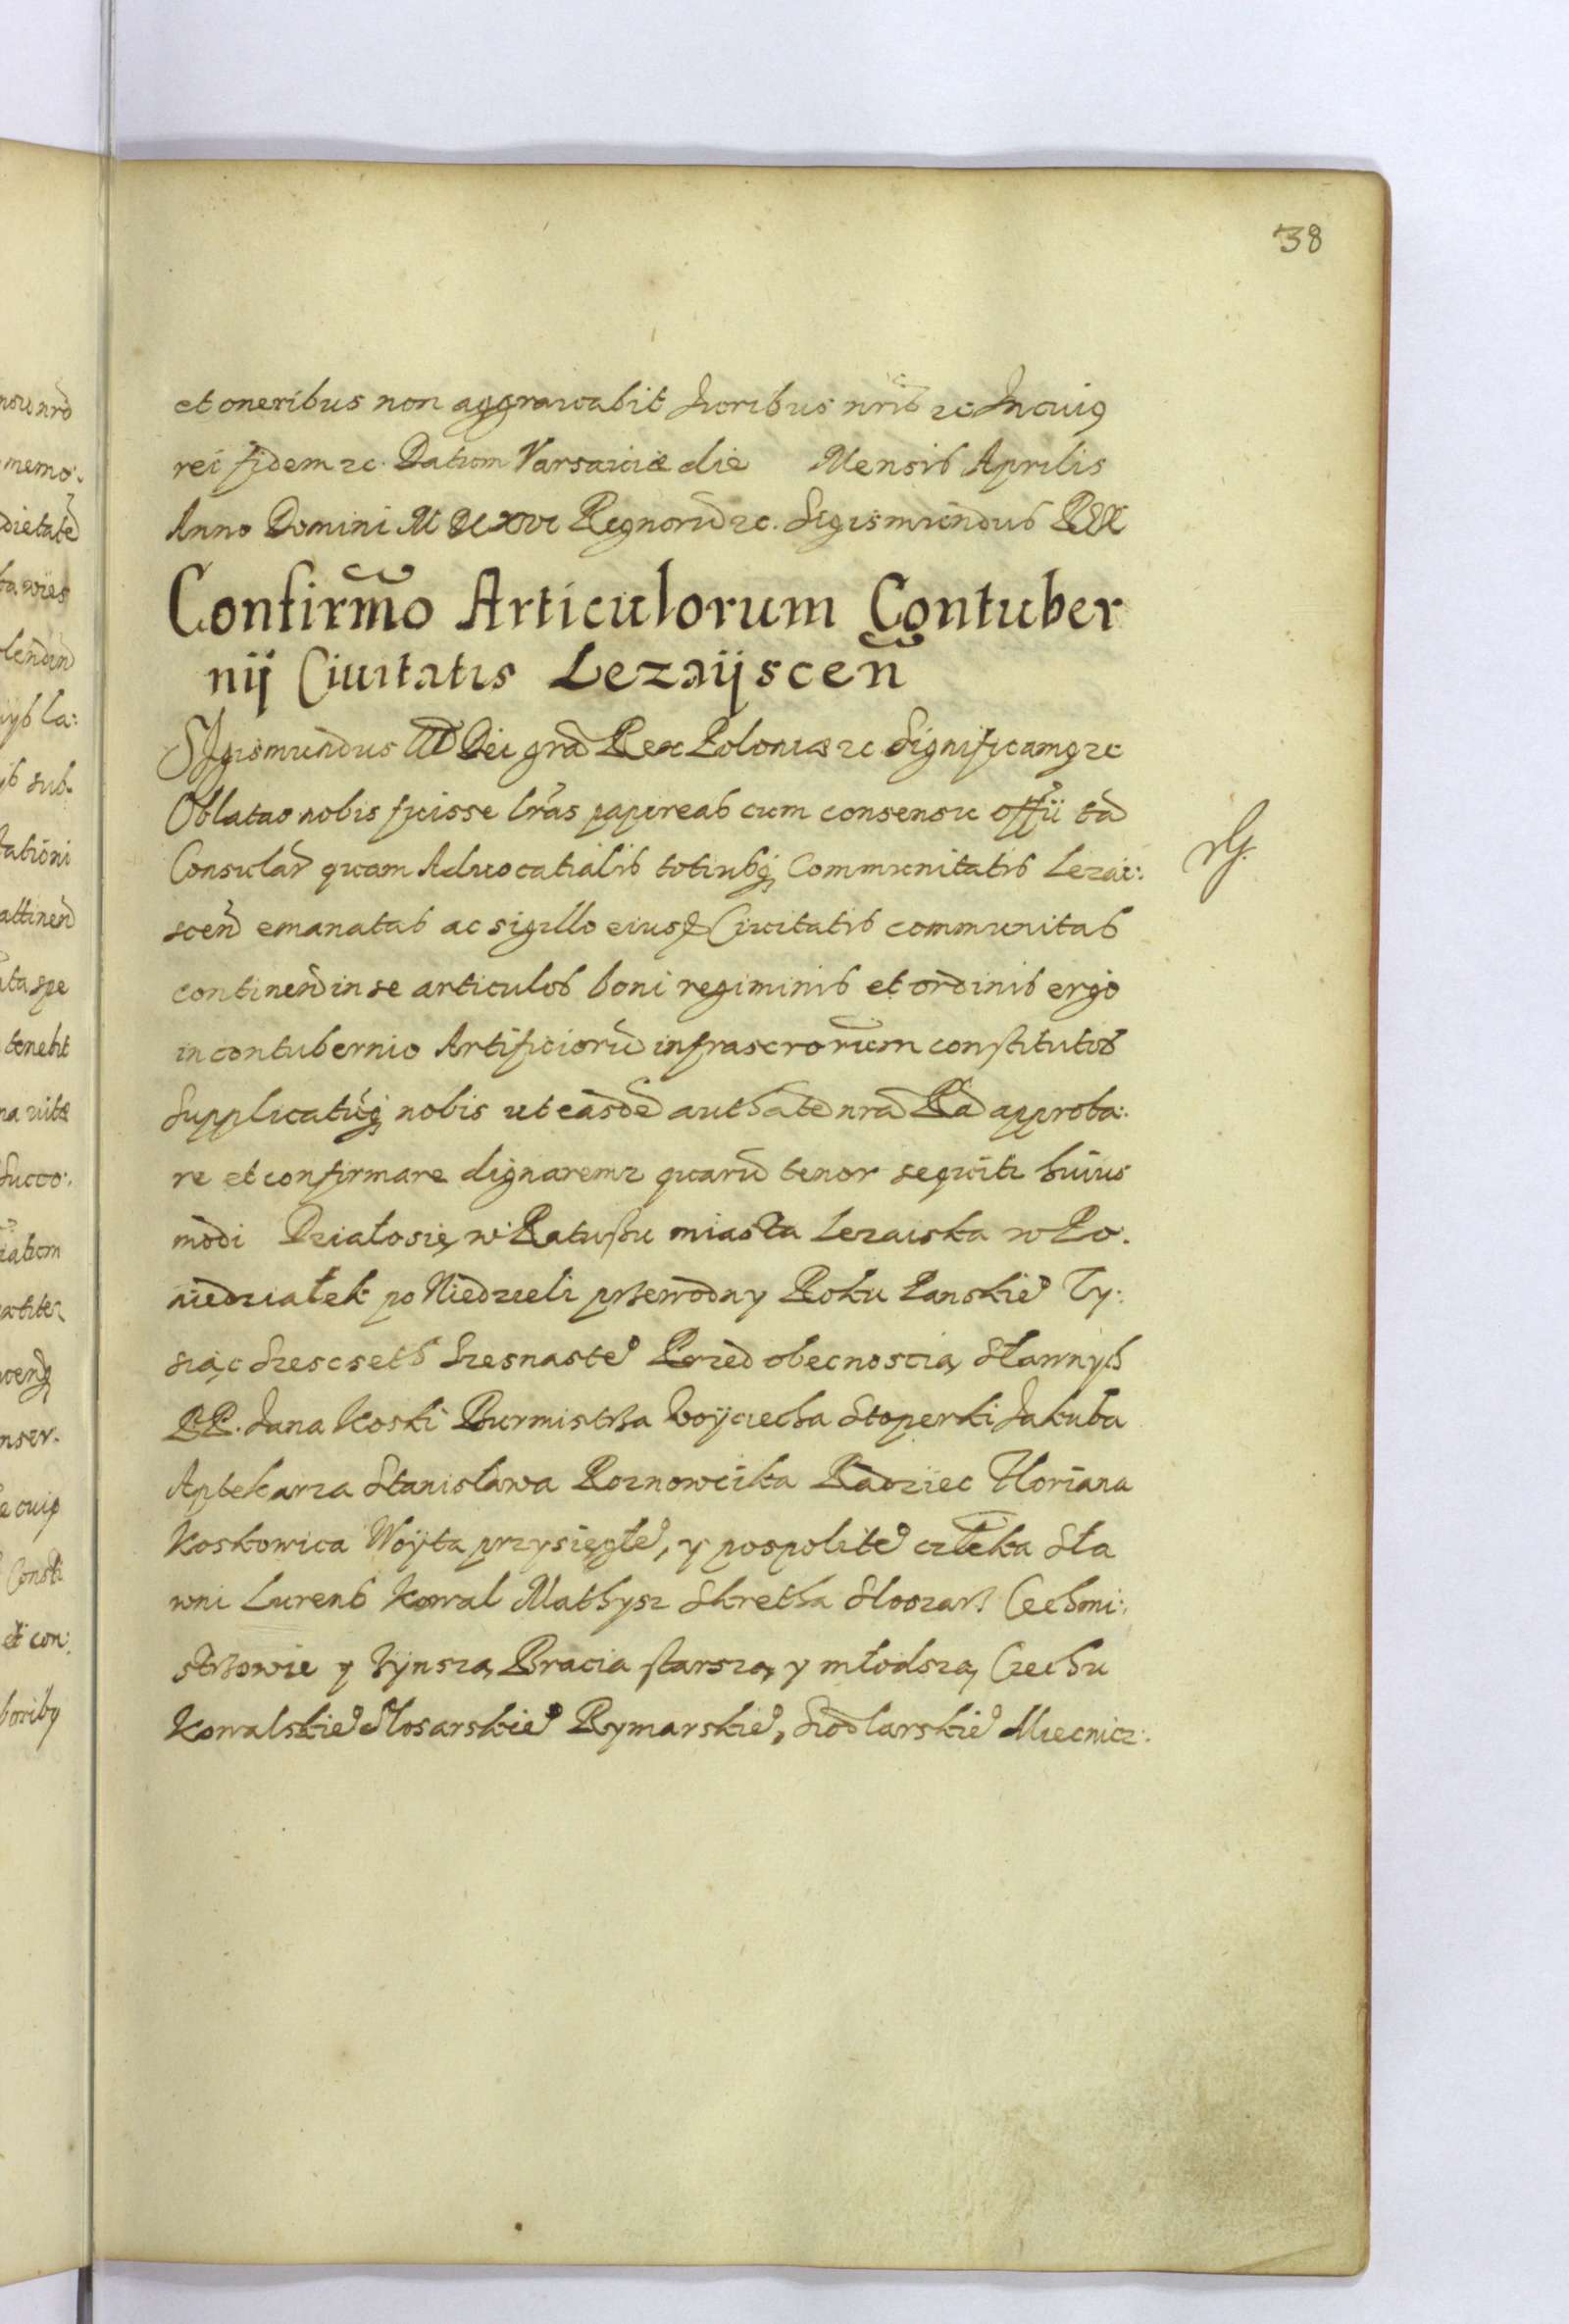 38
et oneribus non aggravabit Juribus nrīs ꝛc In cuiꝰ
rei fidem ꝛc. Datum Varsaviæ die Mensis Aprilis
Anno Domini M DCXVI Regnorū ꝛc. Sigismundus REX
Confirmō Articulorum Contuber
nij Civitatis Lezaijscen̄
SIgismundus IIID Dei grā Rex Poloniæ ꝛc Significamꝰ ꝛc
Oblatas nobis fuisse lrās papireas cum consensu offii tā
Consular̄ quam Advocatialis totiusqꝫ Communitatis Lezai:
scen̄ emanatas ac sigillo eiusd Civitatis communitas
continen̄ in se articulos boni regiminis et ordinis ergo
in contubernio Artificiorū infrascrōrum constitutos
Supplicatūqꝫ nobis ut easdē authātē nrā Rā approba:
re et confirmare dignaremꝛ quarū tenor sequitꝛ huius
modi Działosię w Ratuszu miasta Lezaiska w Po.
niedziałek po Niedzieli przewodny Roku Panskieº Ty:
siąc Szescseth Szesnasteº Przed obecnoscią Sławnych
PP. Jana Koski Burmistrza Woyciecha Stoperki Jakuba
Aptekarza Stanisława Roznowcika Radziec Floriana
Koskowica Woyta przysięgłeº, y pospoliteº człeka Sła
wni Lurens Kowal Mathysz Skretha Slosarz Cechmi:
strzowie y Jynszą Bracia starszą y młodszą Czechu
Kowalskieº Slosarskieº Rymarskieº, Siodlarskieº Miecnicz: